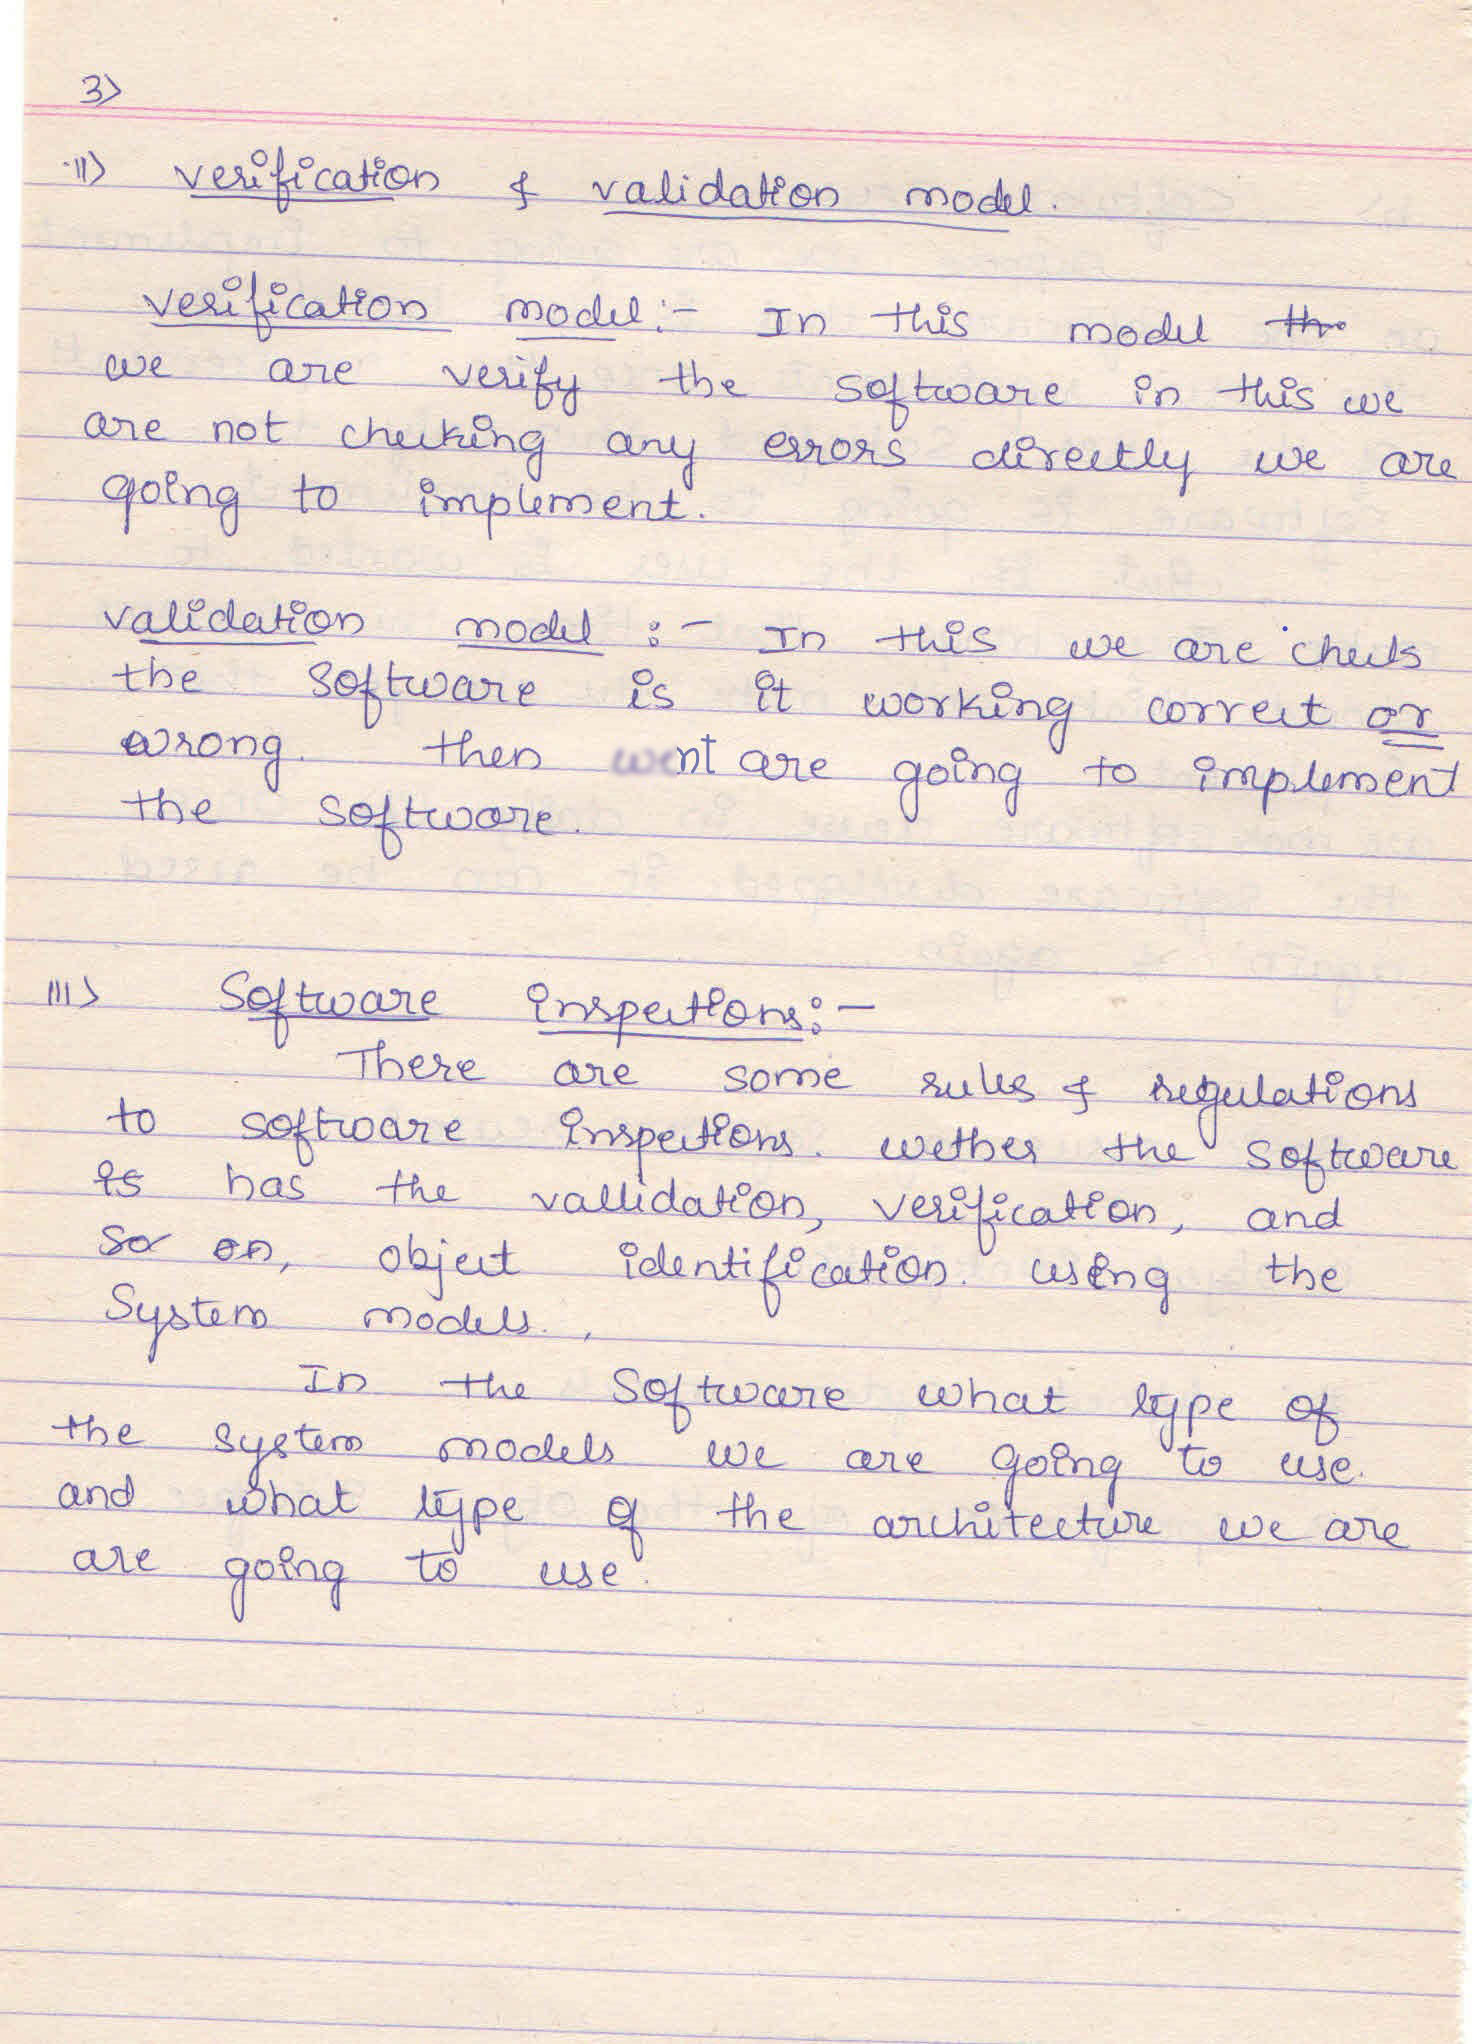 3)
ii) verification & validation model.
verification model:- In this model
we are verify the software in this we
are not checking any errors directly we are
going to implement.
validation model :- In this we are check
the software is it working correct or
wrong. then are going to implement
the software.
iii) Software inspections:-
There are some rules & regulations
to software inspections. wether the software
is has the vallidation, verification, and
so on, object identification. using the
System models.
In the software what type of
the system models we are going to use.
and what type of the architecture we are
are going to use.